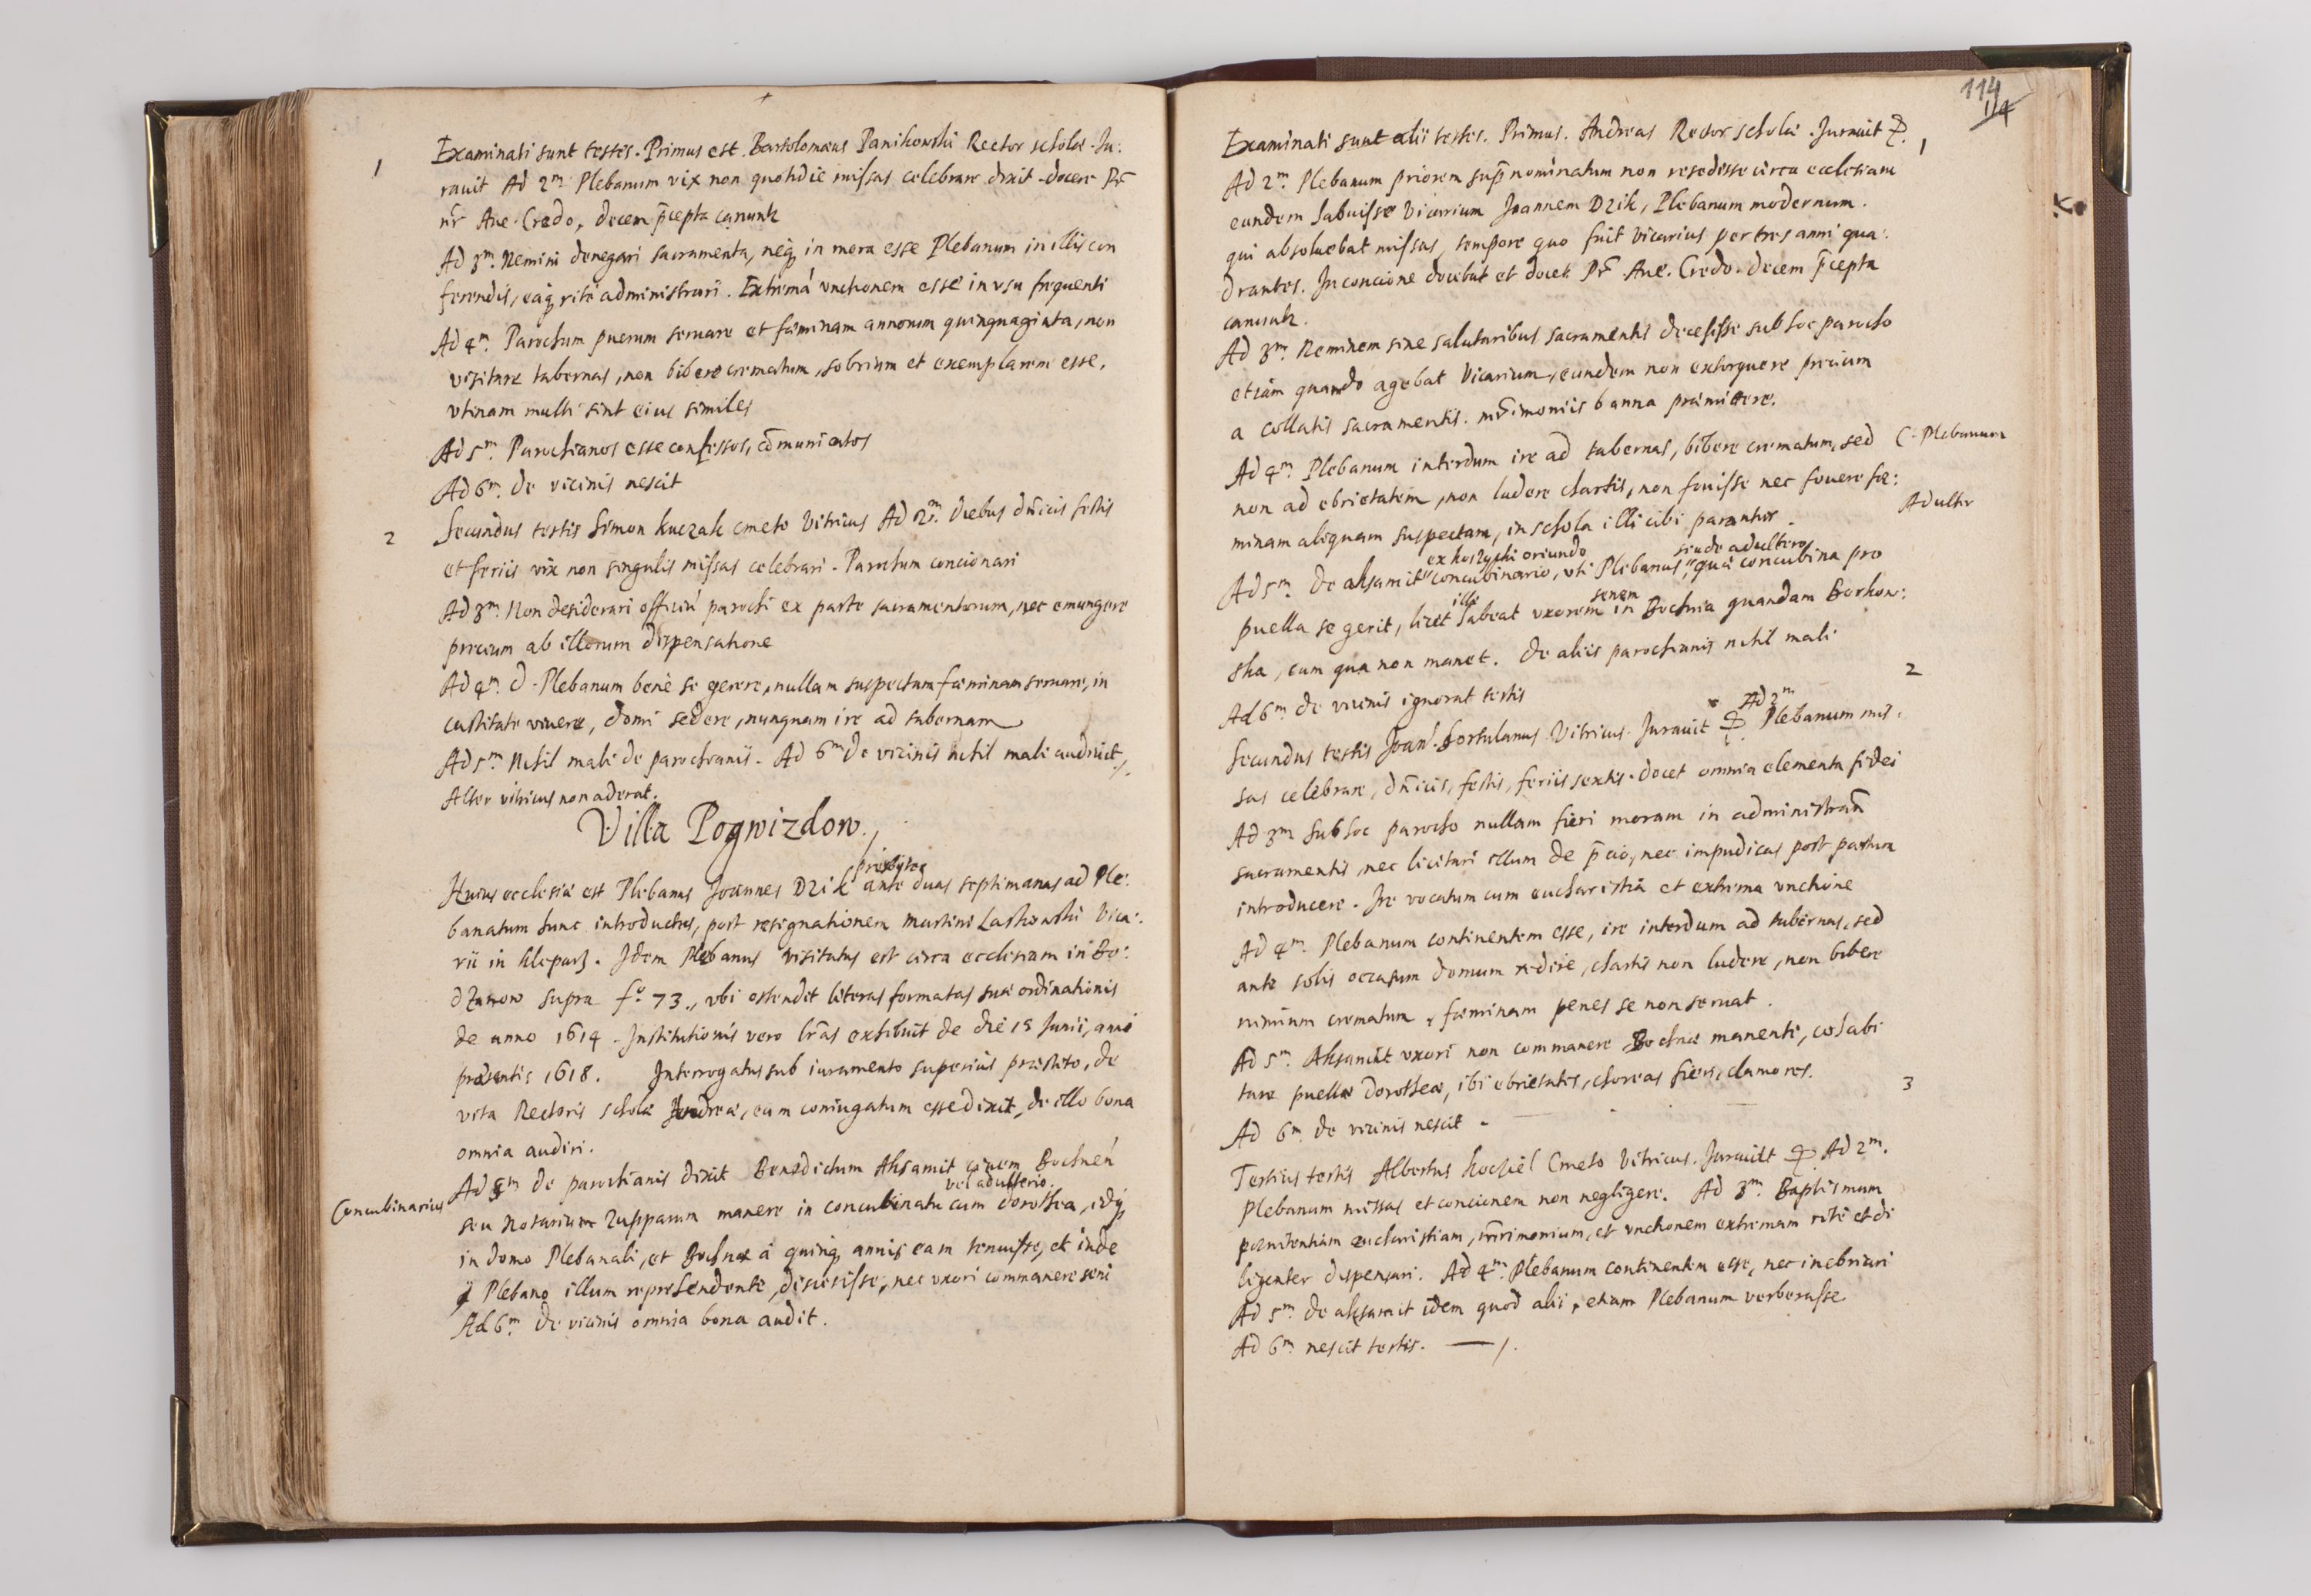 1
Examinati sunt testes. Primus est. Bartolomæus Panikowski Rector scholæ. Ju:
rauit Ad 2m Plebanum vix non quotidie missas celebrare dixit. docere Pr
nr Aue. Credo, decem p̄cepta canunt
Ad 3m. Nemini denegari sacramenta, neq in mora esse Plebanum in illis con
ferendis, eaq ritè administrari. Extremā vnctionem esse in vsu frequenti
Ad 4m. Parochum puerum seruare et fæminam annorum quinquaginta, non
visitare tabernas, non bibere crematum, sobrium et exemplarem esse,
vtinam multi sint eius similes
Ad 5m. Parochianos esse confessos, cōmunicatos
Ad 6m. de vicinis nescit
2
Secundus testis Simon kuczak cmeto Vitricus Ad 2m. diebus dn̄icis festis
et feriis vix non singulis missas celebrari. Parochum concionari
Ad 3m. Non desiderari officiū parochi ex parte sacramentorum, nec emungere
precium ab illorum dispensatione
Ad 4m. d. Plebanum benè se gerere, nullam suspectam fæminam seruare, in
castitate viuere, domi sedere, nunquam ire ad tabernam
Ad 5m Nihil mali de parochianis. Ad 6m de vicinis nihil mali audiuit ./.
Alter vitricus non aderat.
Villa Pogwizdow.
presbyter
Huius ecclesiæ est Plebanus Joannes Dzik ante duas septimanas ad Ple:
banatum hunc introductus, post resignationem Martini Laskowski Vica:
rii in Kleparz. Idem Plebanus visitatus est circa ecclesiam in Bo:
dzanow supra fo 73., vbi ostendit literas formatas suæ ordinationis
de anno 1614. Institutionis vero lr̄as exhibuit de die 15 Junii, anni
præsentis 1618. Interrogatus sub iuramento superius præstito, de
vita Rectoris scholæ Andreæ, eum coniugatum esse dixit, de illo bona
omnia audiri.
Ad 5m de parochianis dixit Benedictum Aksamit ciuem Bochnen
Concubinarius
vel adulterio
seu Notarium Zupparum manere in concubinatu cum dorothea, idq
in domo Plebanali, et Bochnæ à quinq annis eam tenuisse, et inde
Plebano illum reprehendente, discessisse, nec vxori commanere seni
Ad 6m. de vicinis omnia bona audit.
114
114
Examinati sunt alii testes. Primus. Andreas Rector scholæ. Jurauit
1
Ad 2m. Plebanum priorem supr̄ nominatum non resedisse circa ecclesiam
eundem habuisse Vicarium Joannem Dzik, Plebanum modernum.
qui absoluebat missas, tempore quo fuit Vicarius per tres anni qua:
drantes. In concione docebat et docet Pr̄ Aue. Credo. decem p̄cepta
canunt.
Ad 3m. Neminem sine salutaribus sacramentis decessisse sub hoc parocho
etiam quando agebat Vicarium, eundem non extorquere precium
a collatis sacramentis. mr̄imoniis banna præmittere.
Ad 4m. Plebanum interdum ire ad tabernas, bibere crematum, sed
C. Plebanum
non ad ebrietatem, non ludere chartis, non fouisse nec fouere fæ:
minam aliquam suspectam, in schola illi cibi parantur.
Adulter
ex koszycki oriundo siue de adultero
Ad 5m de aksamit concubinario, vti Plebanus, quæ concubina pro
ille senem
puella se gerit, licet habeat vxorem in Bochnia quandam Borkow:
ska, cum qua non manet. de aliis parochianis nihil mali
Ad 6m de vicinis ignorat testis
2
Ad 2m
Secundus testis Joan. hortulanus Vitricus. Jurauit Plebanum mis:
sas celebrare, dn̄icis, festis, feriis sextis. docet omnia elementa fidei
Ad 3m Sub hoc parocho nullam fieri moram in administran̄
sacramentis, nec licitari illum de p̄cio, nec impudicas post partum
introducere. Ire vocatum cum eucharistia et extrema vnctione
Ad 4m. Plebanum continentem esse, ire interdum ad tabernas, sed
ante solis occasum domum redire, chartis non ludere, non bibere
nimium crematum, fæminam penes se non seruat.
Ad 5m Aksamit vxori non commanere Bochnæ manenti, cohabi
tare puellæ dorotheæ, ibi ebrietates, choreas fieri, clamores.
Ad 6m de vicinis nescit.
3
Tertius testis Albertus kochiel Cmeto Vitricus. Jurauit Ad 2m.
Plebanum missas et concionem non negligere. Ad 3m. Baptismum
pænitentiam eucharistiam, mr̄rimonium, et vnctionem extremam ritè et di
ligenter dispensari. Ad 4m. Plebanum continentem esse, nec inebriari
Ad 5m de aksamit idem quod alii, etiam Plebanum verberasse
Ad 6m nescit testis. — /.